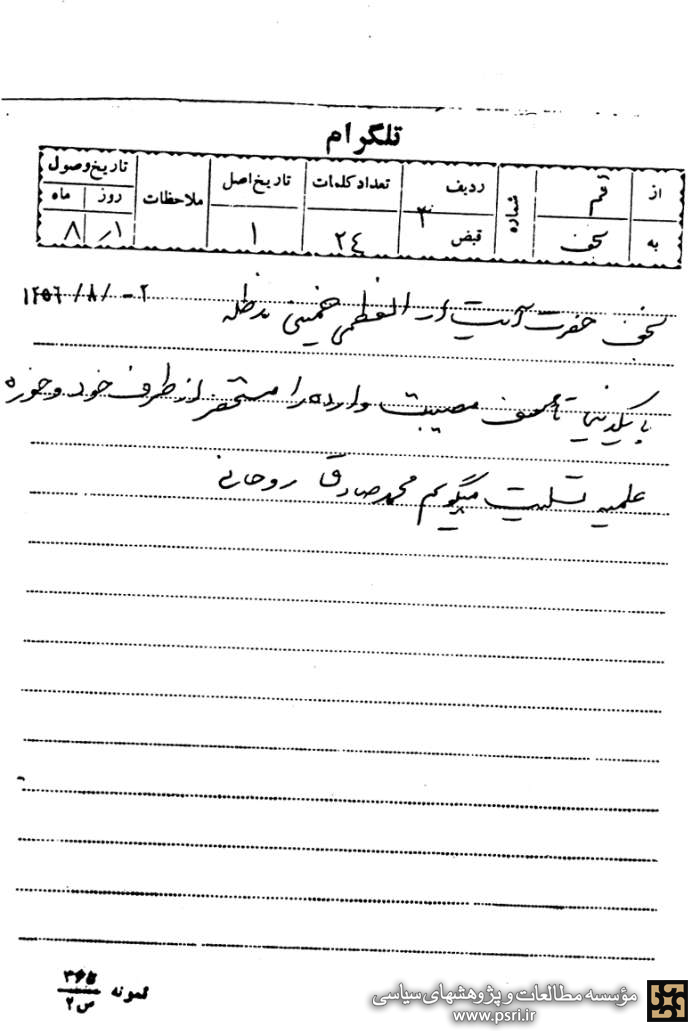 تلگرام
از قم ردیف تعداد کلمات تاریخ اصل ملاحظات تاریخ وصول
شماره روز ماه
به نجف قبض ۳ ۲۴ ۱ ۱ ۸
نجف حضرت آیت الله العظمی خمینی مدظله ۲-/۸/۱۳۵۶
با یکدنیا تأسف مصیبت وارده را مستحضر از طرف خود و حوزه
علمیه تسلیت میگویم محمد صادق روحانی
نمونه ۳۶۵
ص ۲
مؤسسه مطالعات و پژوهشهای سیاسی
www.psri.ir